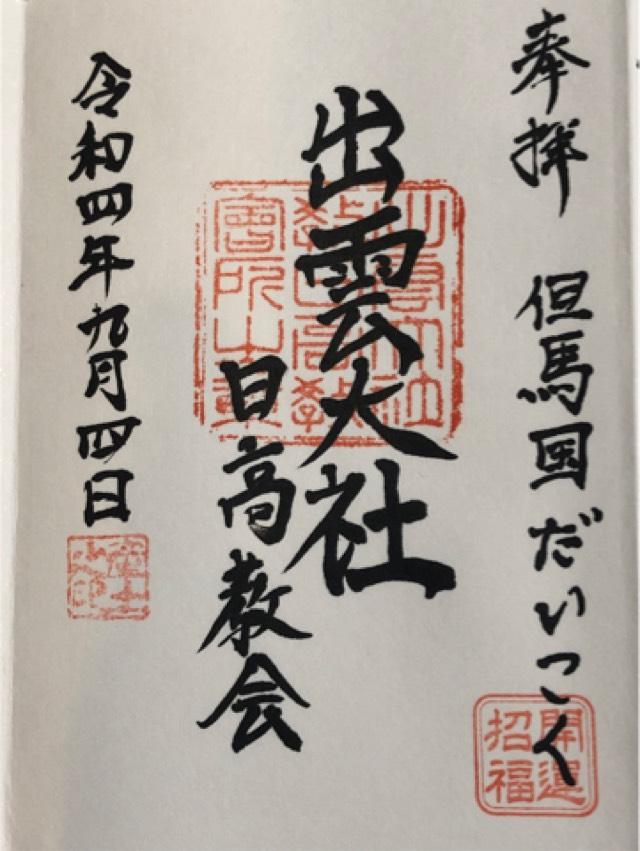 奉拝 但馬国だいこく
出雲大社
日高教会
令和四年九月四日
開運
招福